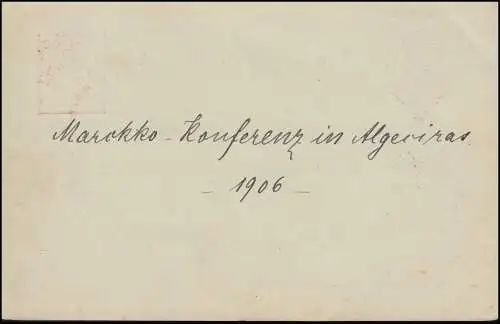 Marokko - Konferenz in Algeciras.
- 1906 -